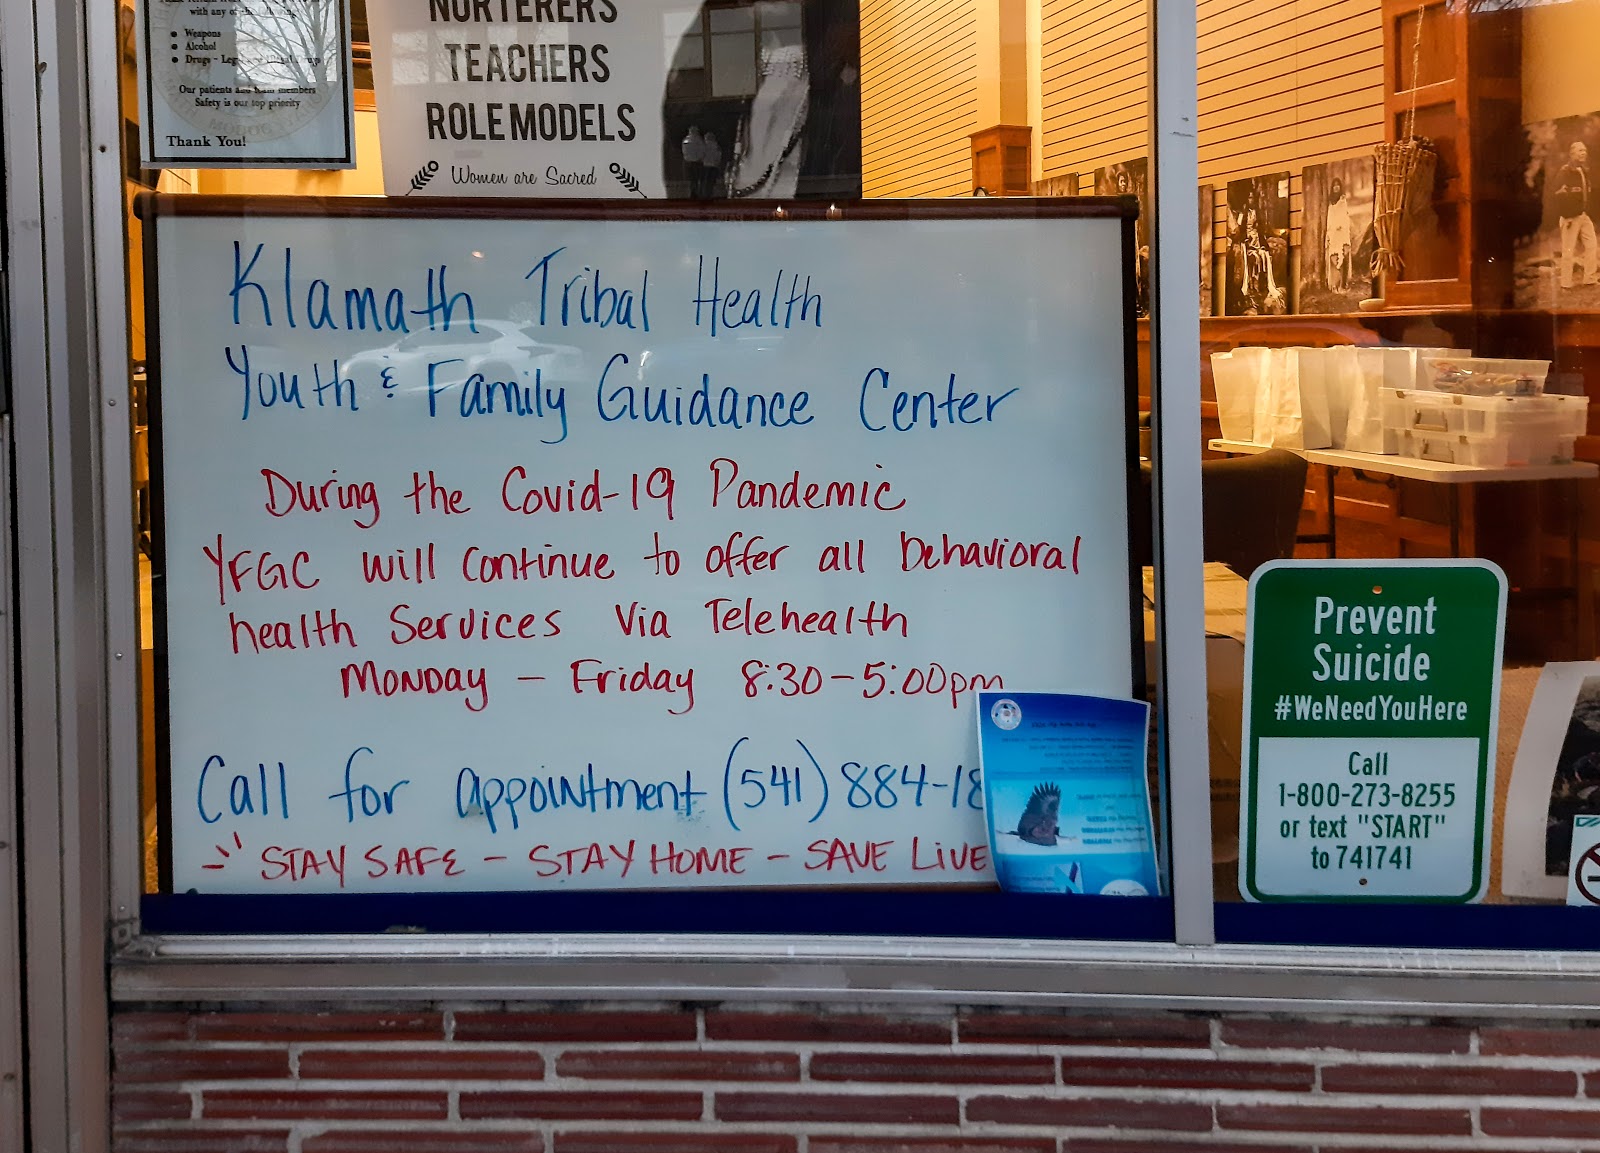 with any of the following
Weapons
Alcohol
Drugs -
Our patients and team members
Safety is our top priority
Thank You!
MODOC
NURTERERS
TEACHERS
ROLE MODELS
Women are Sacred
Klamath Tribal Health
Youth & Family Guidance Center
During the Covid-19 Pandemic
YFGC will continue to offer all behavioral
health Services Via Telehealth
Monday - Friday 8:30-5:00pm
Call for appointment (541) 884-18
STAY SAFE - STAY HOME - SAVE LIVE
Prevent
Suicide
#WeNeedYouHere
Call
1-800-273-8255
or text "START"
to 741741